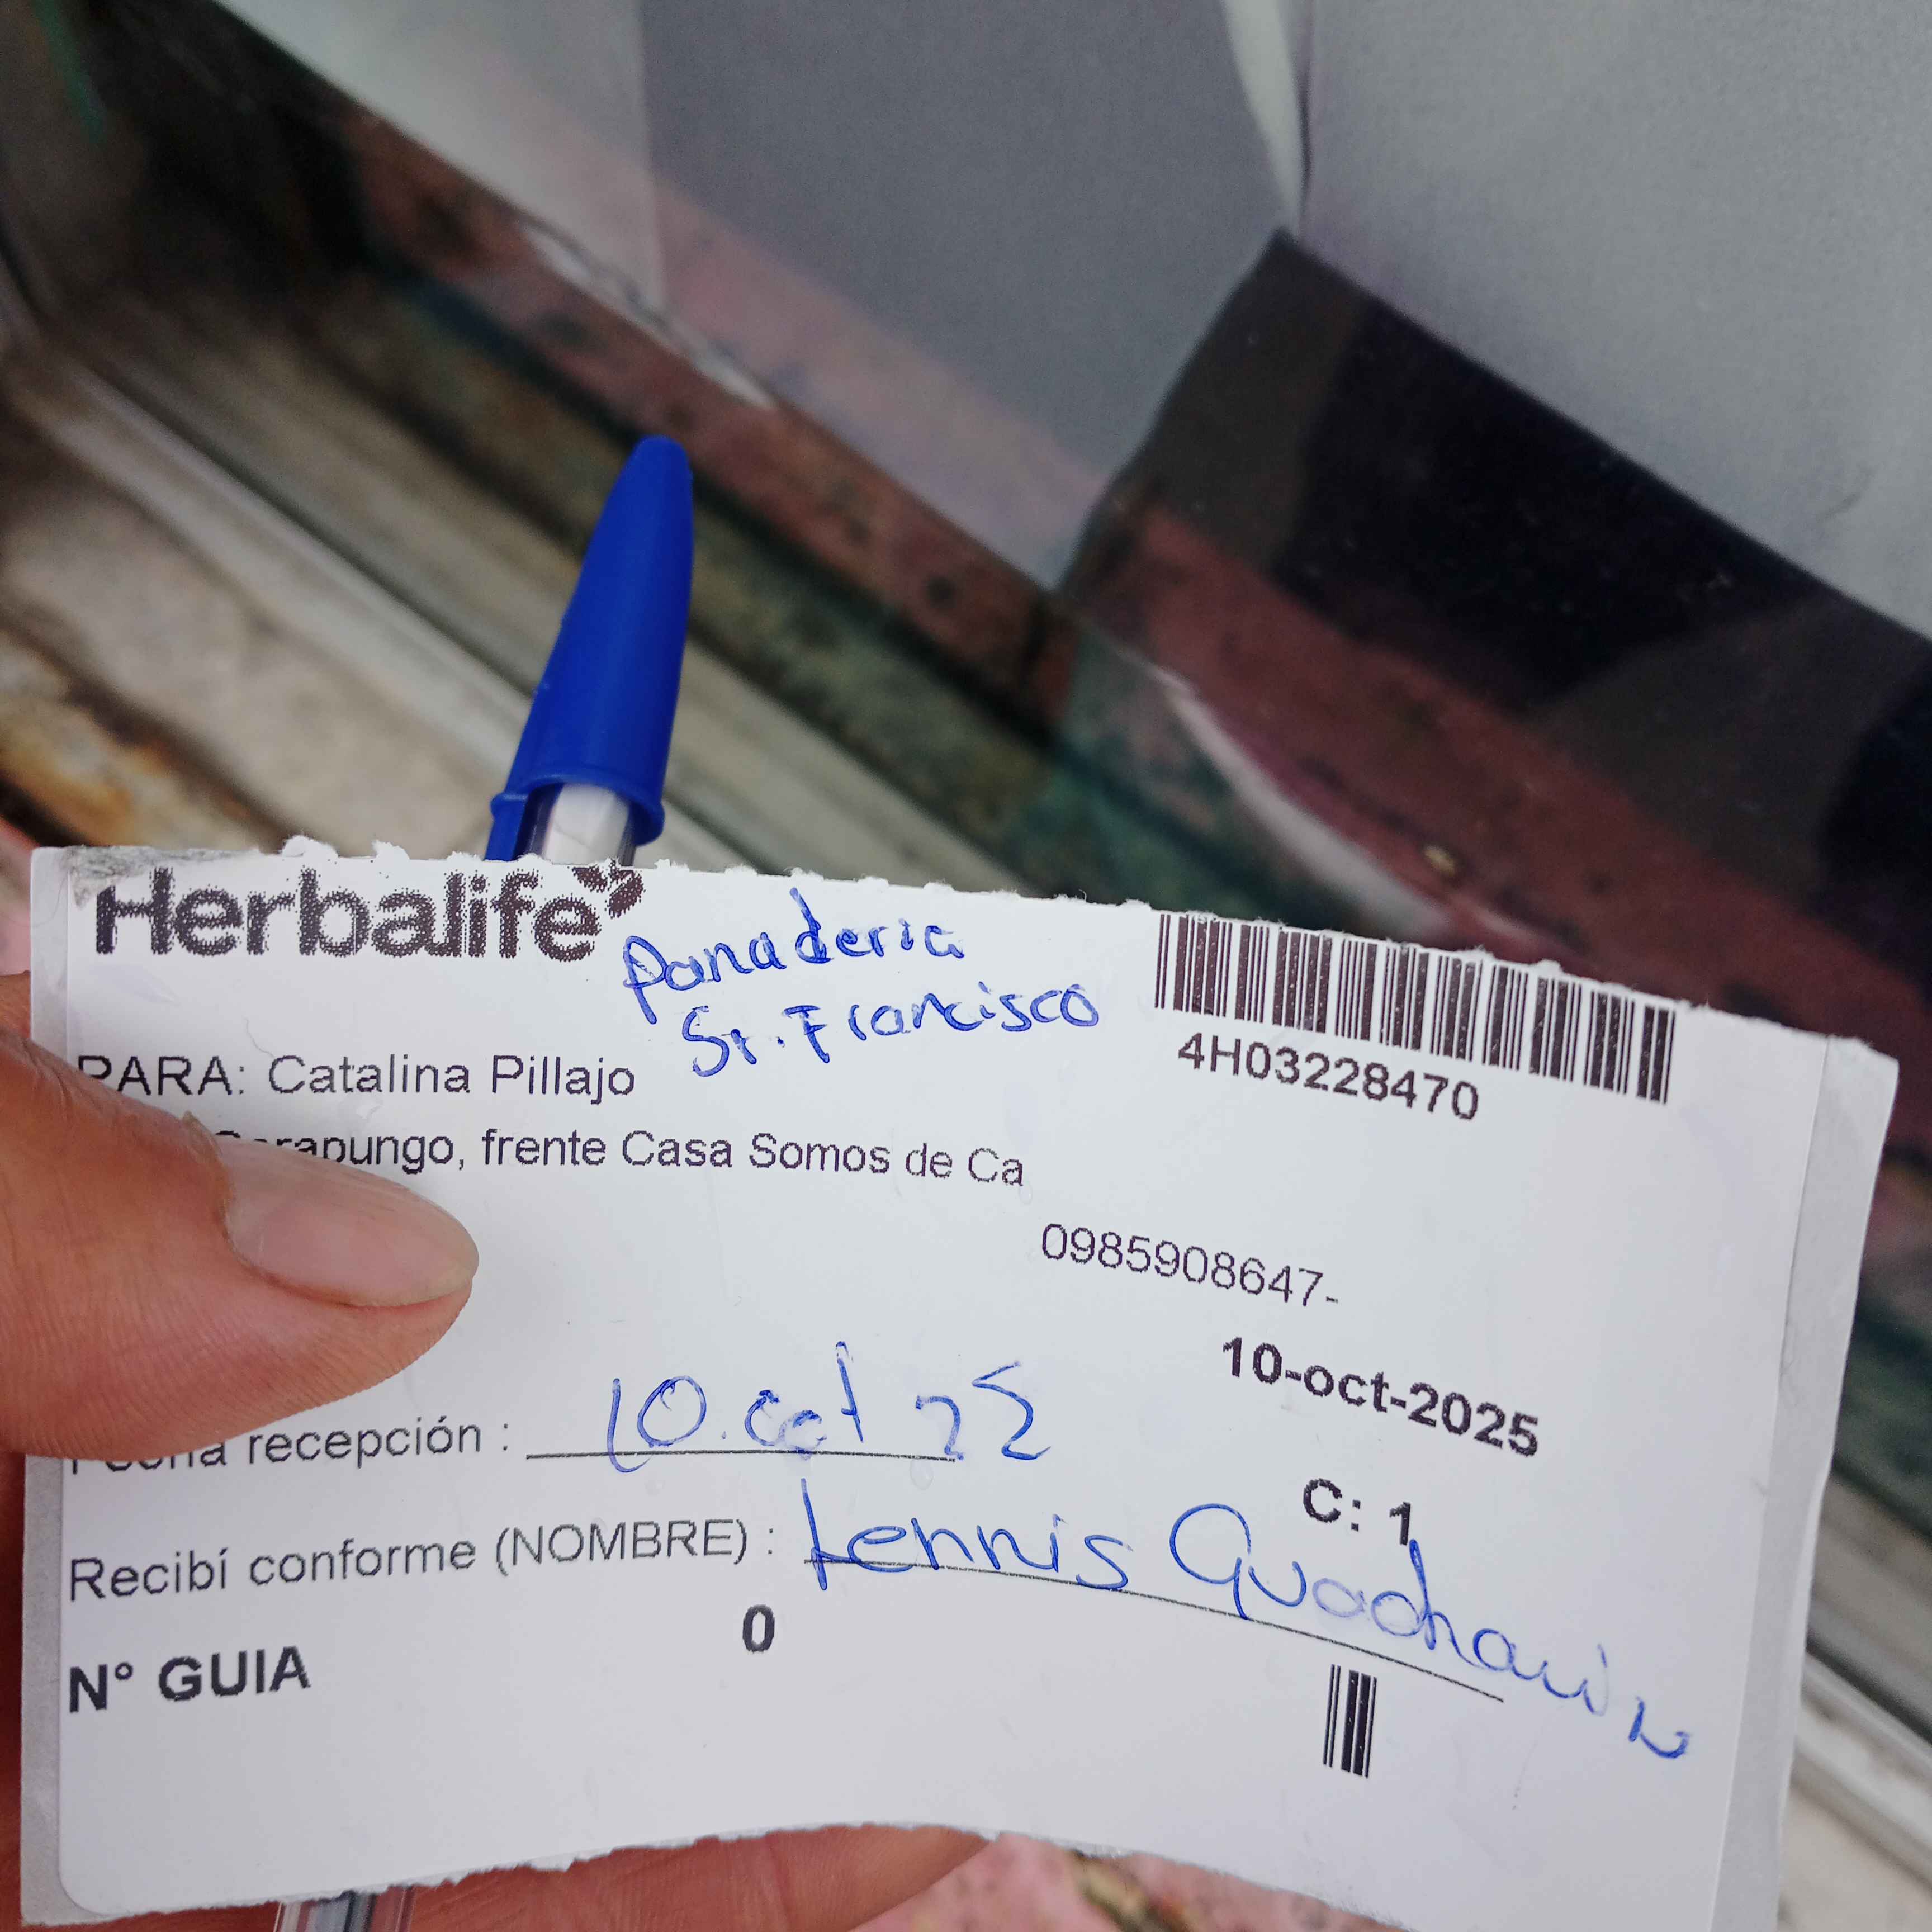 Herbalife
Panaderia
Sr. Francisco
4H03228470
PARA: Catalina Pillajo
frente Casa Somos de Ca
0985908647-
10-oct-2025
recepción : 10.oct 25
C: 1
Recibí conforme (NOMBRE) : Lennis
0
N° GUIA